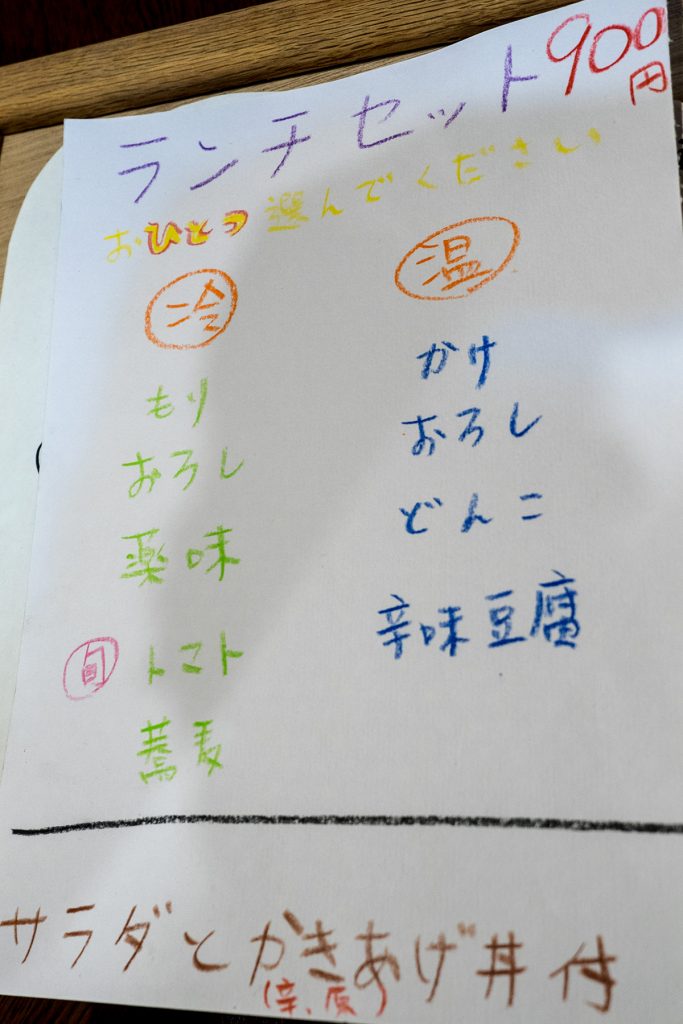 ランチセット 900円
おひとつ選んでください
冷
もり
おろし
薬味
旬 トマト
蕎麦
温
かけ
おろし
どんこ
辛味豆腐
サラダとかきあげ丼付